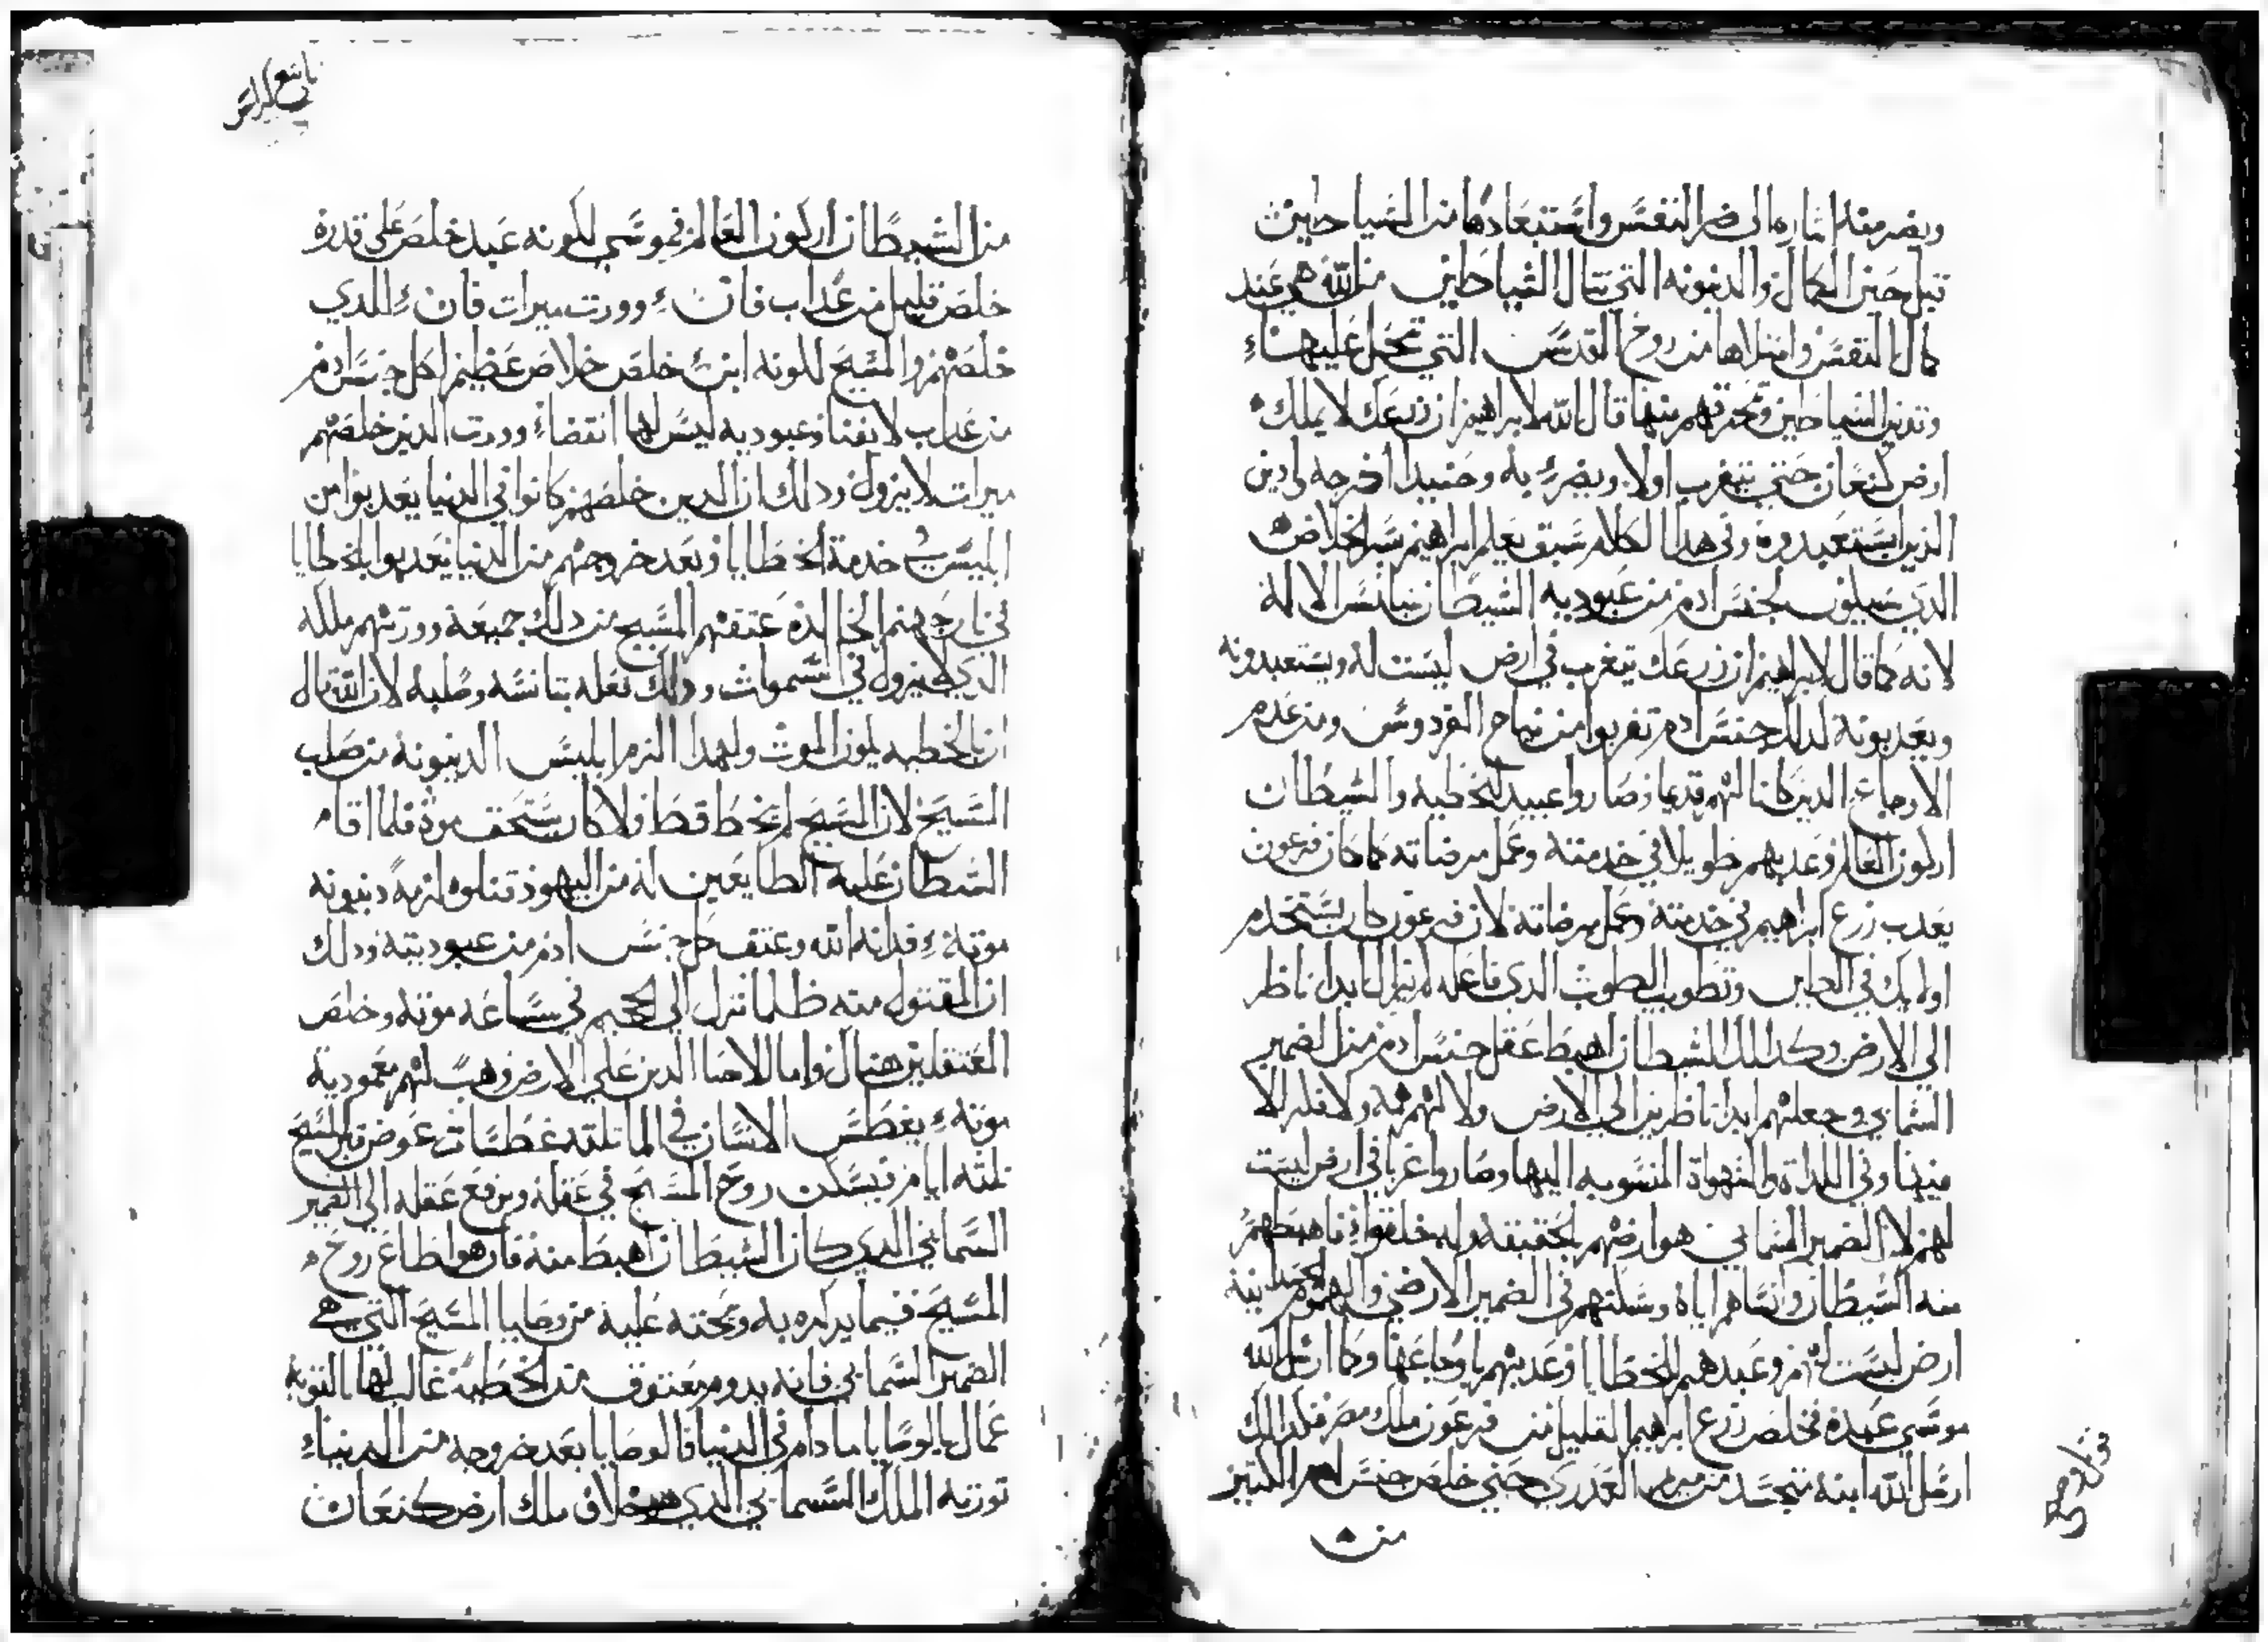 ويضرمنه اثاره الى ضر النفس واستبعادها من الشياطين
قبل حين الكمال والدينونه التي تنال الشياطين من الله هي عند
كمال النفس وامتلاها من روح القدس التي تحل عليها
وتدين الشياطين وتحرقهم منها قال الله لابراهيم ان زرعك لا يملك
ارض كنعان حتي يتغرب اولا ويضر به وحنيدا اخرجه وادين
الذين استعبدوه وفي هدا الكلام سبق يعلم ابراهيم سر الخلاص
الدي سيكون لجنس ادم من عبوديه الشيطان بتانس الاله
لانه كما قال لابراهيم ان زرعك يتغرب في ارض ليست له ويستعبدونه
ويعدبونه لدلك جنس ادم تغربوا من نياح الفردوس ومن عدم
الاوجاع الدين كانا لهم قديما وصاروا عبيد للخطيه والشيطان
اركون العالم وعدبهم طويلا في خدمته وعمل مرضاته كما كان فرعون
يعدب زرع ابراهيم في خدمته وعمل مرضاته لان فرعون كان يستخدم
اوليك في الطين وتطويب الطوب الدي فاعله لا يزال ابدا ناظر
الي الارض وكدلك الشيطان اهبط عقل جنس ادم من الضمير
السمايي وجعلهم ابدا ناظرين الي الارض ولا لهم همه ولا فكر الا
فيها وفي اللداة والشهواة المنسوبه اليها وصاروا غربا في ارض ليست
لهم لان الضمير السمايي هو ارضهم بالحقيقه وله خلقوا فاهبطهم
منه الشيطان وانساهم اياه وسكنهم في الضمير الارضي والهموم
ارض ليست لهم وعبدهم للخطايا وعدبهم باوجاعها وكما ارسل الله
موسي عبده فخلص زرع ابراهيم القليل من فرعون ملك مصر فكدالك
ارسل الله ابنه متجسد من مريم العدري حتي خلص جنس ادم الكتير
من
من الشيطان اركون العالم فموسي لكونه عبد خلص علي قدره
خلص قليل من عداب فان وورت ميرات فان للدي
خلصهم والمسيح لكونه ابن خلص خلاص عظيم لكل جنس ادم
من عداب لا يفنا وعبوديه ليس لها انقضا وورت الدين خلصهم
ميرات لا يزول ودلك ان الدين خلصهم كانوا في الدنيا يعدبوا من
ابليس في خدمة الخطايا وبعد خروجهم من الدنيا يعدبوا بالخطايا
في نار جهنم الخالده عتقهم المسيح من دلك جميعه وورتهم ملكه
الدي لا يزول في السموات ودلك فعله بتانسه وصلبه لان الله قال
ان بالخطيه يكون الموت ولهدا الزم ابليس الدينونه من صلب
المسيح لان المسيح لم يخطا قط ولا كان يستحق موت فلما اقام
الشيطان عليه الطايعين له من اليهود قتلوه لزمه دينونه
موته فدانه الله وعتق كل جنس ادم من عبوديته ودلك
ان المقتول منه ظلما نزل الي الجحيم في ساعة موته وخلص
المعتقلين هناك واما الاحيا الدين علي الارض وهب لهم معمودية
موته يغطس الانسان في الما تلته غطسات عوض قبر المسيح
تلته ايام فيسكن روح المسيح في عقله ويرفع عقله الي الضمير
السمايي الدي كان الشيطان اهبط منه فان هو اطاع روح
المسيح فيما يدكره به وتحته عليه من وصايا المسيح التي هي
الضمير السمايي فانه يدوم معتوق من الخطيه غالب لها بالتوبه
عمال بالوصايا ما دام في الدنيا فالوصايا بعد خروجه من الدنيا
تورته الملك السمايي الدي هو بخلاف ملك ارض كنعان